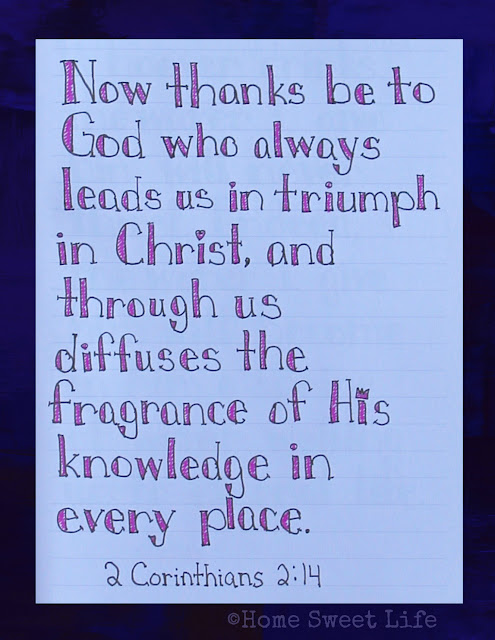 Now thanks be to
God who always
leads us in triumph
in Christ, and
through us
diffuses the
fragrance of His
knowledge in
every place.
2 Corinthians 2:14
©Home Sweet Life